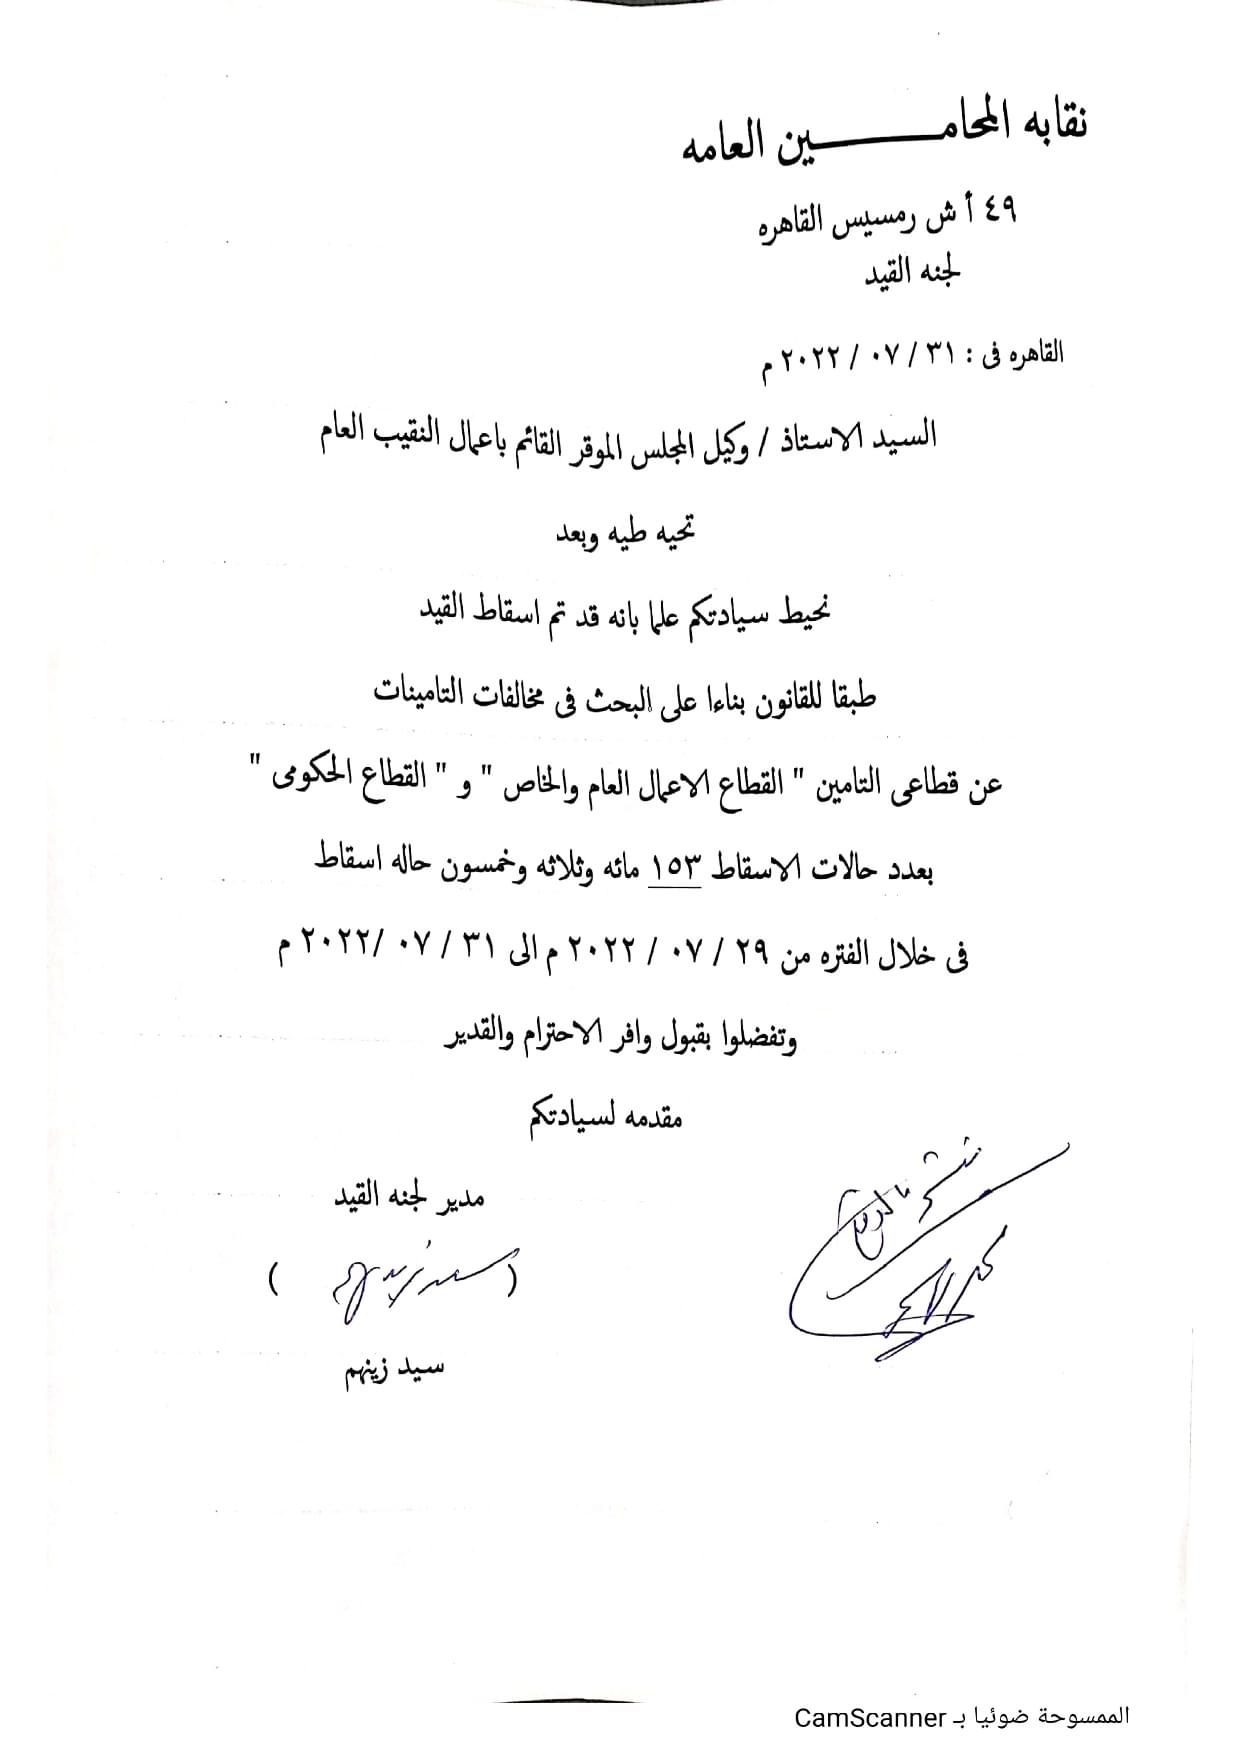 نقابه المحامـــــــين العامه
٤٩ أ ش رمسيس القاهره
لجنه القيد
القاهره فى : ٣١ / ٠٧ / ٢٠٢٢ م
السيد الاستاذ / وكيل المجلس الموقر القائم باعمال النقيب العام
تحيه طيه وبعد
نحيط سيادتكم علما بانه قد تم اسقاط القيد
طبقا للقانون بناءا على البحث فى مخالفات التامينات
عن قطاعى التامين " القطاع الاعمال العام والخاص " و " القطاع الحكومى "
بعدد حالات الاسقاط ١٥٣ مائه وثلاثه وخمسون حاله اسقاط
فى خلال الفتره من ٢٩ / ٠٧ / ٢٠٢٢ م الى ٣١ / ٠٧ /٢٠٢٢ م
وتفضلوا بقبول وافر الاحترام والقدير
مقدمه لسيادتكم
مدير لجنه القيد
( )
سيد زينهم
الممسوحة ضوئيا بـ CamScanner